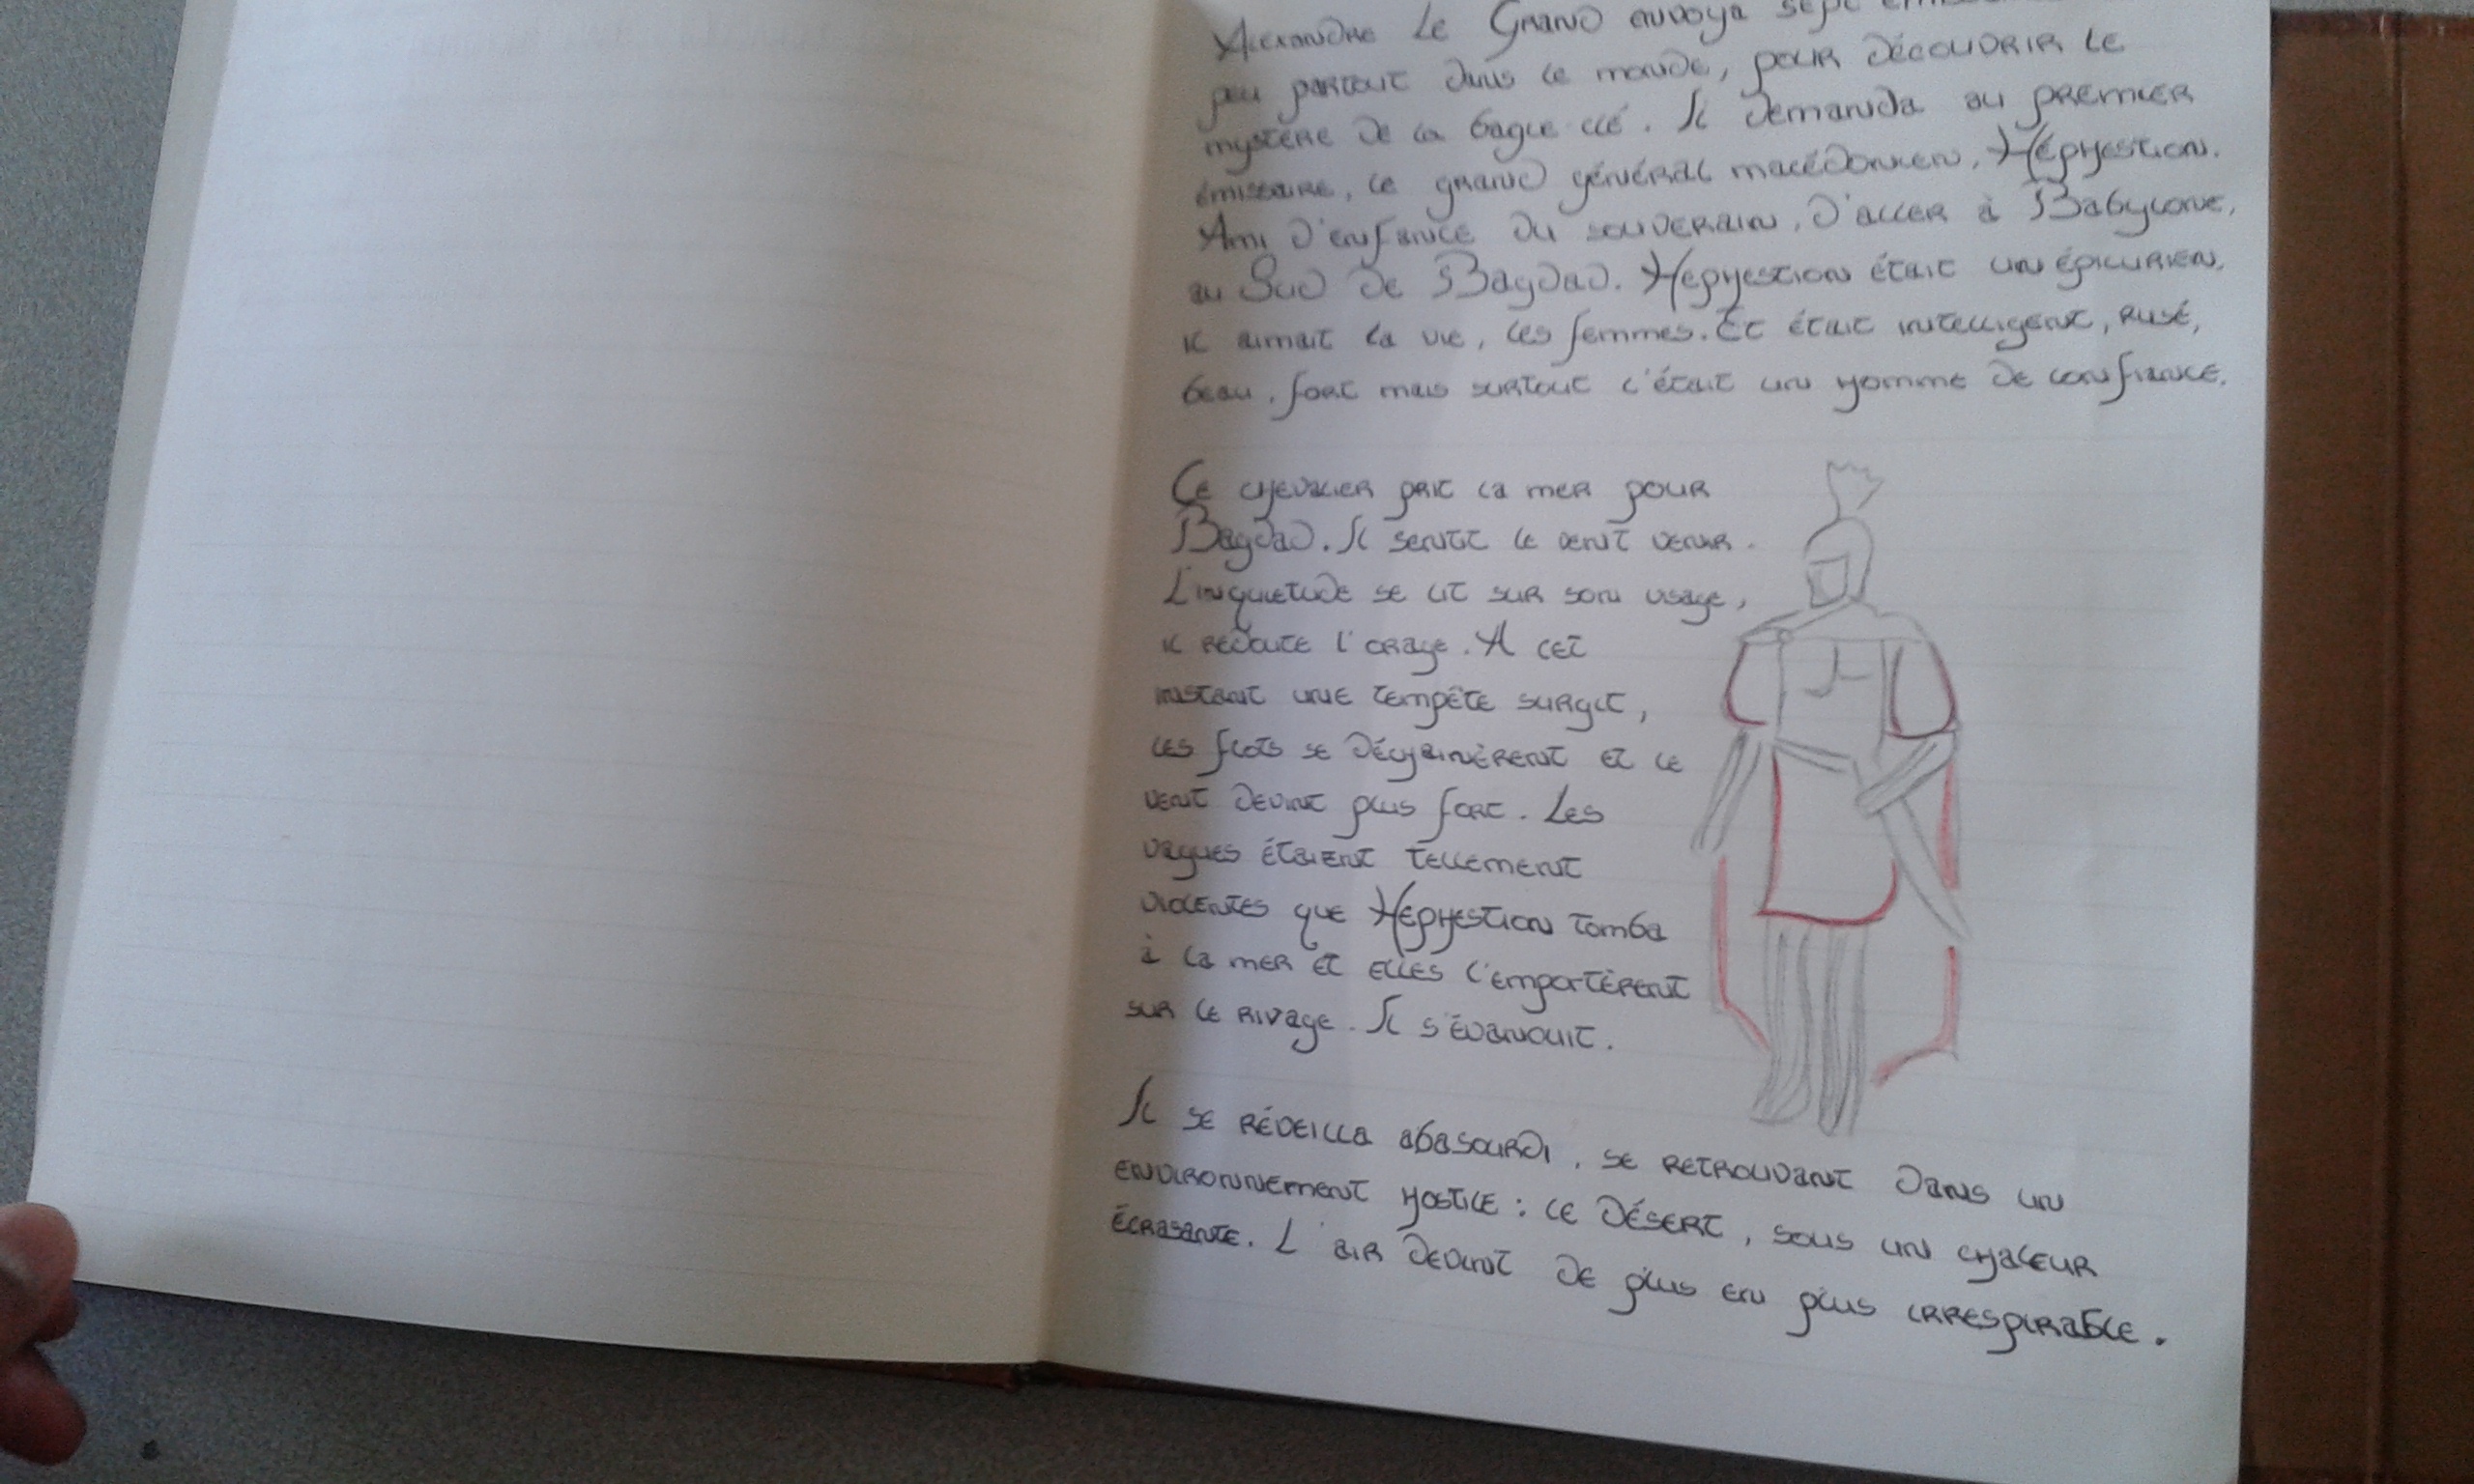 Alexandre Le Grand envoya sept
peu partout dans le monde, pour découvrir le
mystère de la bague clé. Il demanda au premier
émissaire, le grand général macédonien, Héphestion.
Ami d'enfance du souverain, d'aller à Babylone,
au Sud de Bagdad. Héphestion était un épicurien,
il aimait la vie, les femmes. Et était intelligent, rusé,
beau, fort mais surtout c'était un homme de confiance.
Ce chevalier prit la mer pour
Bagdad. Il sentit le vent venir.
L'inquietude se lit sur son visage,
il redoute l'orage. A cet
instant une tempête surgit,
les flots se déchainèrent et le
vent devint plus fort. Les
vagues étaient tellement
violentes que Héphestion tomba
à la mer et elles l'emportèrent
sur le rivage. Il s'évanouit.
Il se réveilla abasourdi, se retrouvant dans un
environnement hostile : le désert, sous un chaleur
écrasante. L'air devint de plus en plus irrespirable.